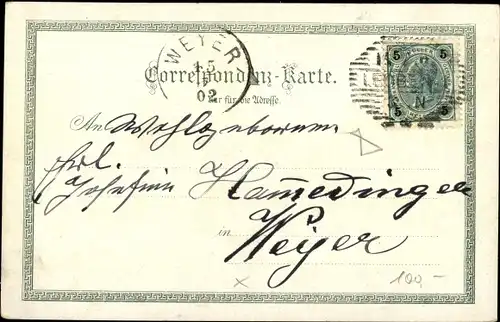 WEYER
15
02
5 5
5 5
N
Correspondenz-Karte.
Nur für die Adresse.
An Wohlgeboren
Frl.
Josefine Hamedinger
in
Weyer
100,-